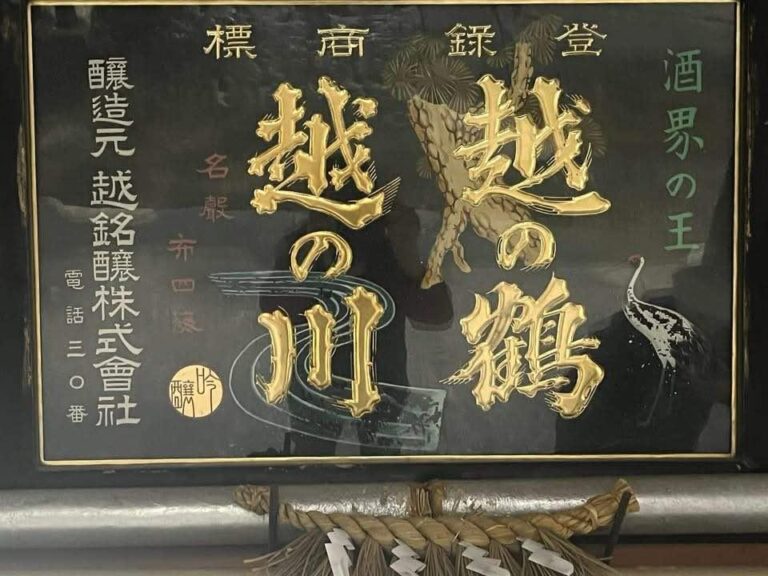 登録商標
酒界の王
越の鶴
越の川
名聲布四海
吟釀
釀造元 越銘釀株式會社
電話三〇番